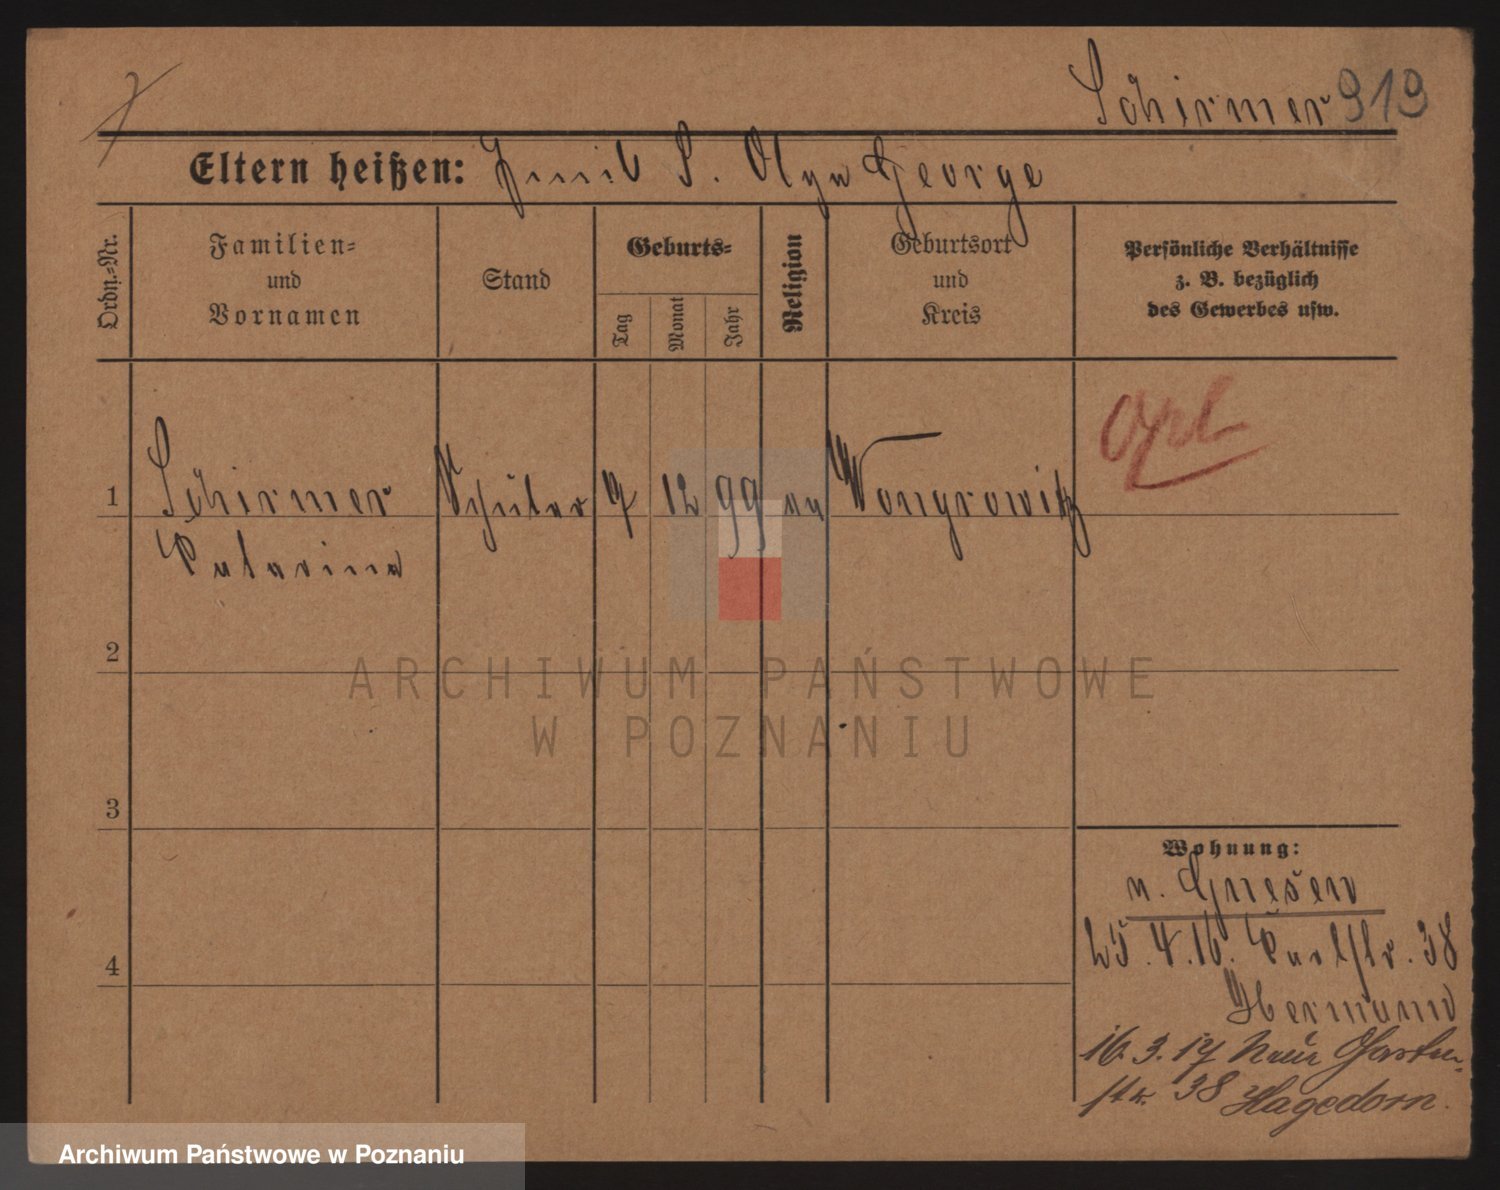 Schirmer 919
Eltern heißen: Emil S. Olga George
Ordn.-Nr.
Familien-
und
Vornamen
Stand
Geburts-
Tag
Monat
Jahr
Religion
Geburtsort
und
Kreis
Persönliche Verhältnisse
z. B. bezüglich
des Gewerbes usw.
1 Schirmer Schüler 7 12 99 ev Wongrowitz
Katarina
2
3
4
Wohnung:
n. Gnesen
25.4.16. Karlstr. 38
Hermann
16.3.17 Neue Garten-
str. 38 Hagedorn.
ARCHIWUM PAŃSTWOWE
W POZNANIU
Archiwum Państwowe w Poznaniu